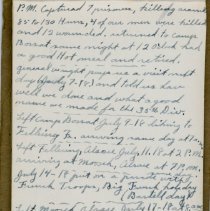 P.M. Captured 7 prisoners, killed around
35 to 130 Huns, 4 of our men were killed
and 12 wounded. returned to camp
Borrat same night at 12 O'clock had
a good Hot meal and retired.
General wright pays us a visit night
July 7-18) and told us how
well we done and what a good
name we made for the 35th Div.
Left Camp Borrat July 9-18 hiking to
Felling Fr. arriving same day at
Left Felling Alsace July 11, 18 at 2 P.M.
arriving at Moosch, Alsace at 7 P.M.
July 14-18 put on a private visit
French Troops, Big French holiday
(Bastell day)
Left Moosch Alsace July 17-18 at